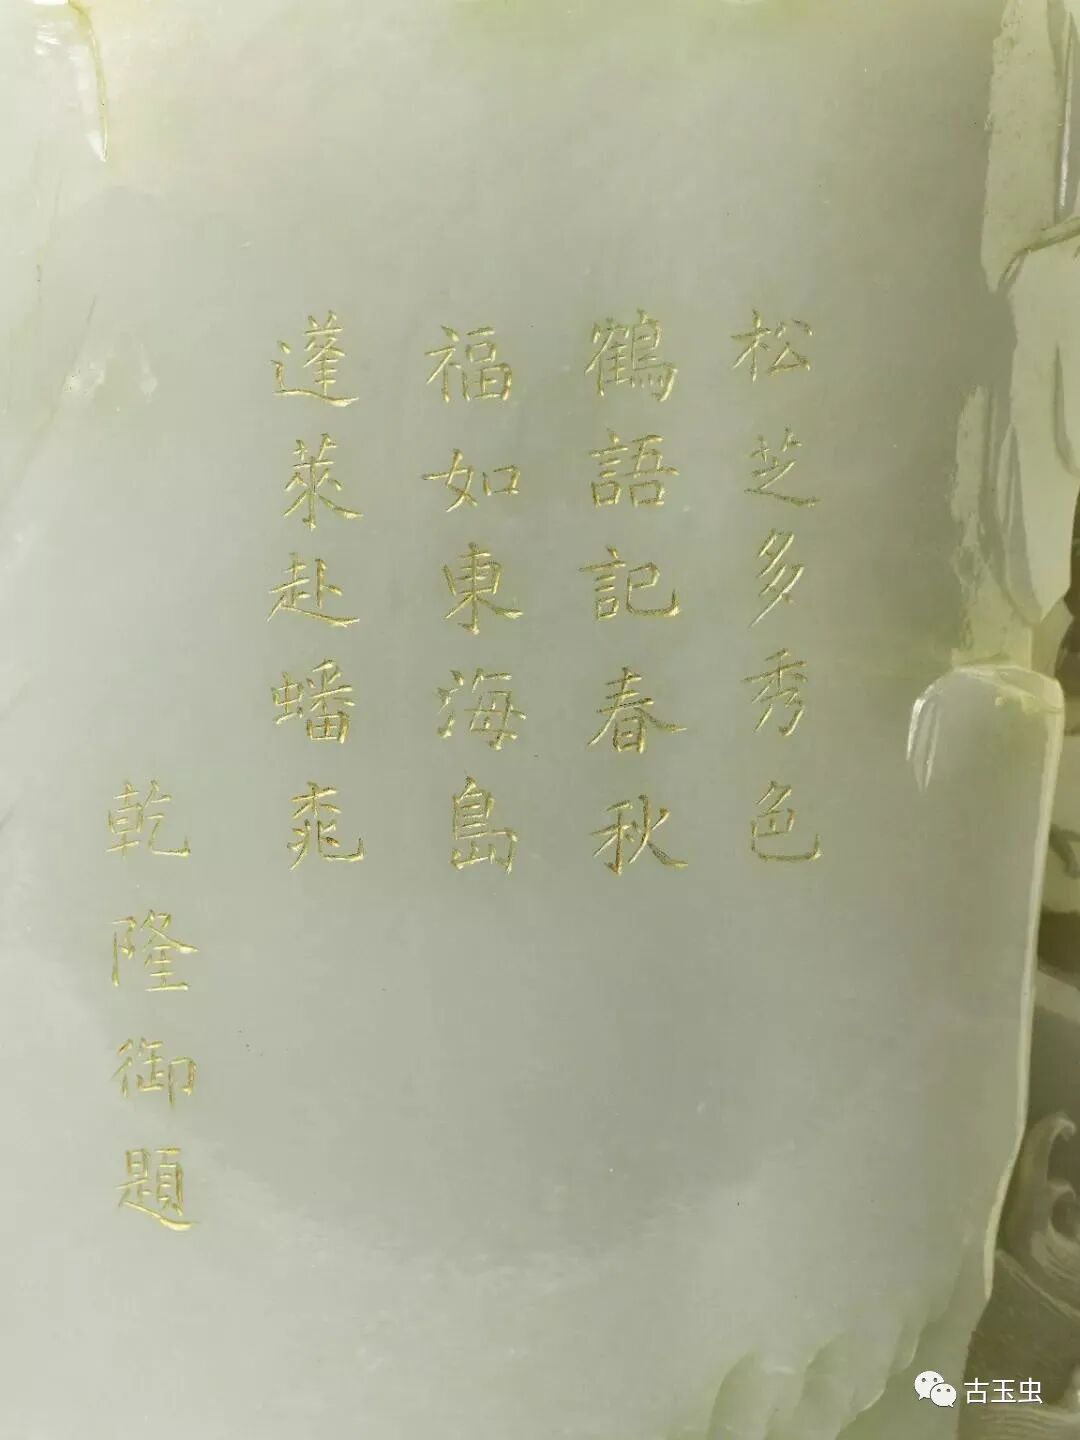 松芝多秀色
鶴語記春秋
福如東海島
蓬萊赴蟠桃
乾隆御題
古玉虫